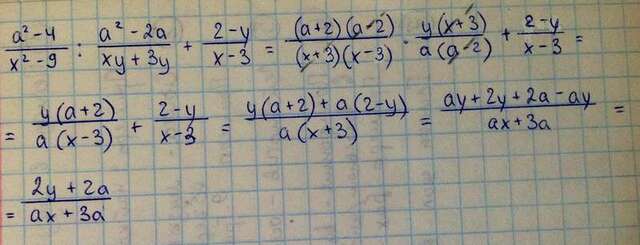 (a² - 4)/(x² - 9) : (a² - 2a)/(xy + 3y) + (2 - y)/(x - 3) = ((a+2)(a-2))/((x+3)(x-3)) · (y(x+3))/(a(a-2)) + (2-y)/(x-3) =
= (y(a+2))/(a(x-3)) + (2-y)/(x-3) = (y(a+2)+a(2-y))/(a(x+3)) = (ay+2y+2a-ay)/(ax+3a) =
= (2y+2a)/(ax+3a)